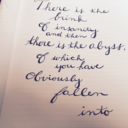 There is the
brink
of insanity
and then
there is the abyss.
Of which
you have
obviously
fallen
into